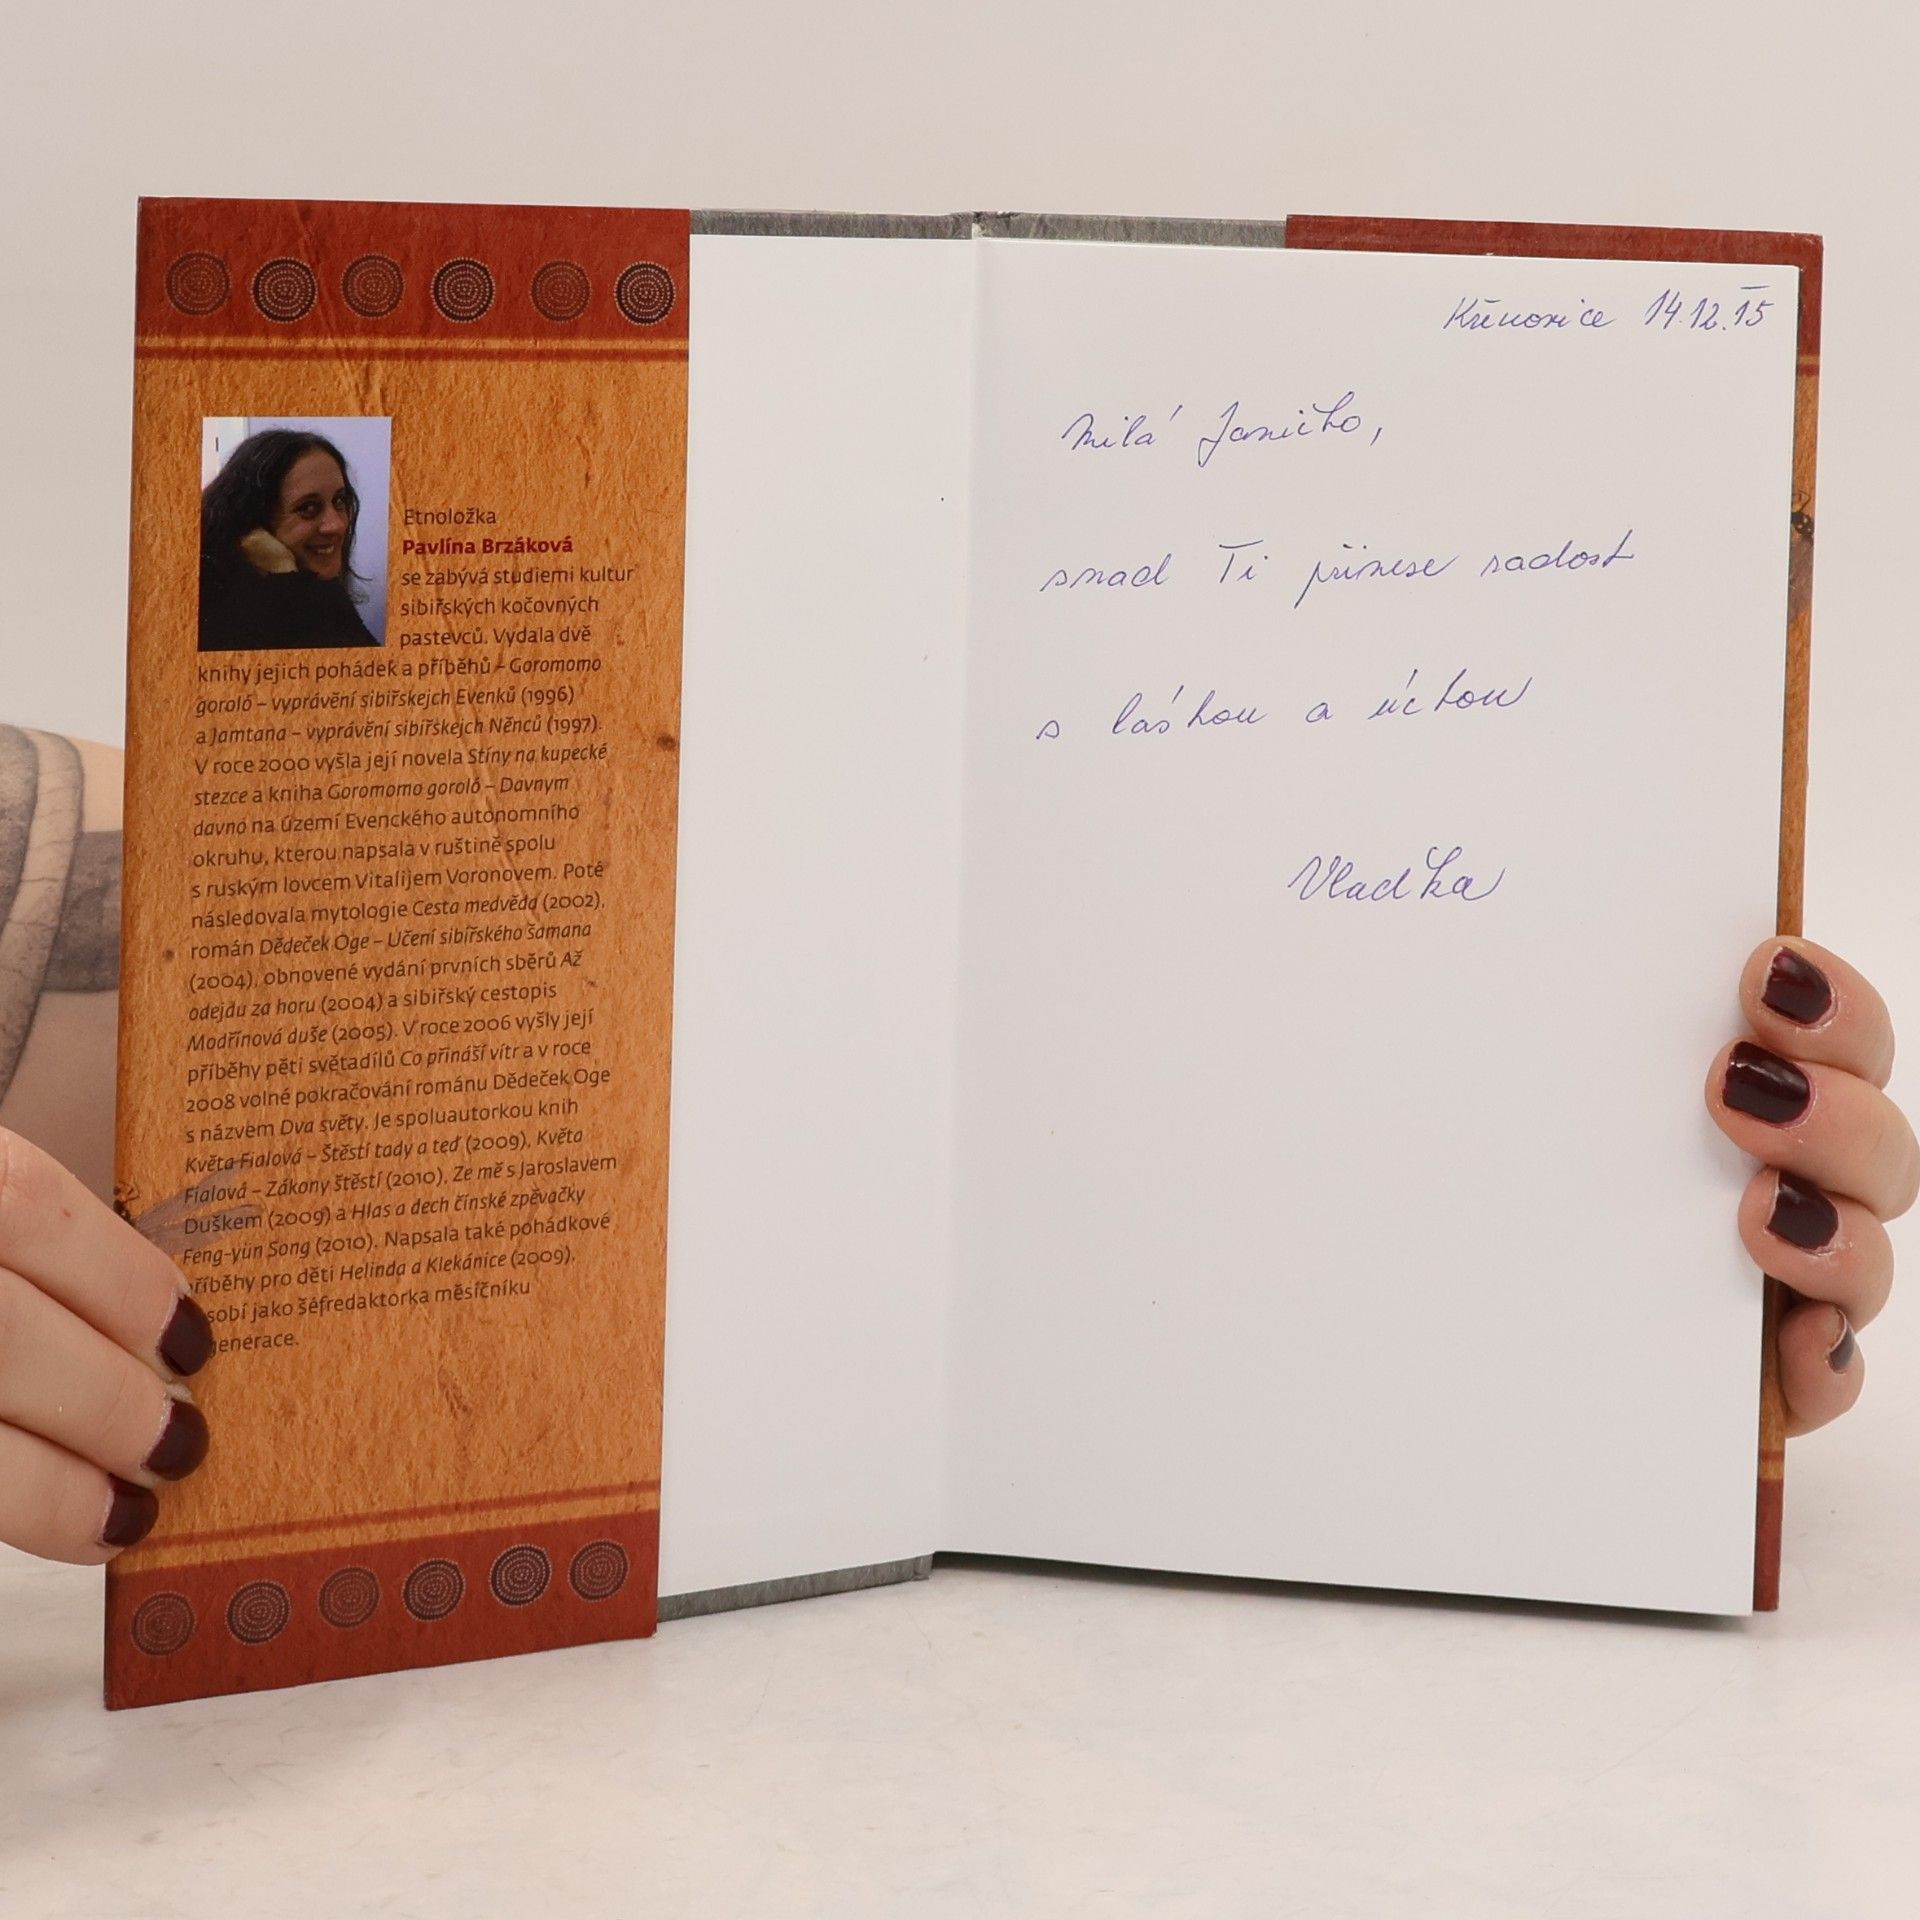 Etnoložka
Pavlína Brzáková
se zabývá studiemi kultur
sibiřských kočovných
pastevců. Vydala dvě
knihy jejich pohádek a příběhů – Goromomo
goroló – vyprávění sibiřskejch Evenků (1996)
a Jamtana – vyprávění sibiřskejch Něnců (1997).
V roce 2000 vyšla její novela Stíny na kupecké
stezce a kniha Goromomo goroló – Davnym
davno na území Evenckého autonomního
okruhu, kterou napsala v ruštině spolu
s ruským lovcem Vitalijem Voronovem. Poté
následovala mytologie Cesta medvěda (2002),
román Dědeček Oge – Učení sibiřského šamana
(2004), obnovené vydání prvních sběrů Až
odejdu za horu (2004) a sibiřský cestopis
Modřínová duše (2005). V roce 2006 vyšly její
příběhy pěti světadílů Co přináší vítr a v roce
2008 volné pokračování románu Dědeček Oge
s názvem Dva světy. Je spoluautorkou knih
Květa Fialová – Štěstí tady a teď (2009), Květa
Fialová – Zákony štěstí (2010), Ze mě s Jaroslavem
Duškem (2009) a Hlas a dech čínské zpěvačky
Feng-yün Song (2010). Napsala také pohádkové
příběhy pro děti Helinda a Klekánice (2009).
sobí jako šéfredaktorka měsíčníku
generace.
Křenovice 14.12.15
Milá Janičko,
snad Ti přinese radost
s láskou a úctou
Vlaďka